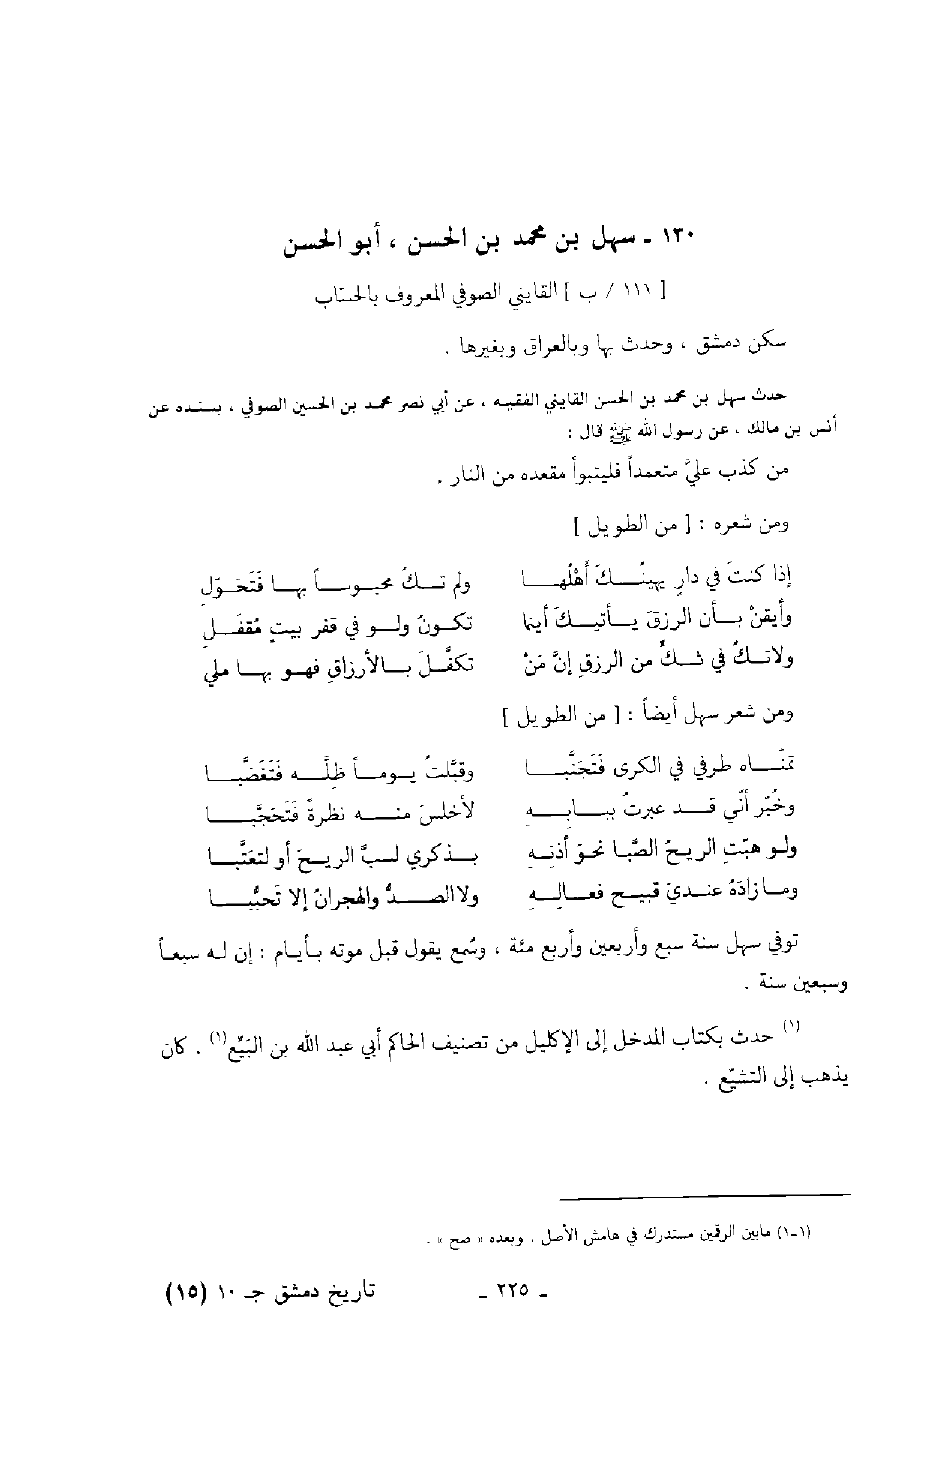 ١٣٠ ـ سهل بن محمد بن الحسن ، أبو الحسن
[ ١١١ / ب ] القايني الصوفي المعروف بالخشاب
سكن دمشق ، وحدث بها وبالعراق وبغيرها .
حدث سهل بن محمد بن الحسن القايني الفقيه ، عن أبي نصر محمد بن الحسين الصوفي ، بسنده عن
أنس بن مالك ، عن رسول الله ﷺ قال :
من كذب عليَّ متعمداً فليتبوأ مقعده من النار .
ومن شعره : [ من الطويل ]
إذا كنتَ في دارٍ يهينُـكَ أهْلُهـا ولم تـكُ محبـوسـاً بهـا فَتَحَـوّلِ
وأيقنْ بـأن الرزقَ يـأتيـكَ أينما تكـونُ ولـو في قعر بيتٍ مُقفَـلِ
ولاتـكُ في شـكٍّ من الرزقِ إنَّ مَنْ تكفَّـلَ بـالأرزاقِ فهـو بهـا ملي
ومن شعر سهل أيضاً : [ من الطويل ]
تمنَّـاه طرفي في الكرى فَتَجَنَّبـا وقبَّلتُ يـومـاً ظلَّـه فَتَغَضَّبـا
وخُبِّر أنّي قـد عبرتُ ببـابـه لأخلسَ منـه نظرةً فَتَحَجَّبـا
ولو هبّتِ الريحُ الصَّبا نحوَ أذنـهِ بـذكري لسبَّ الريـحَ أو لتعتَّبـا
ومـا زادَهُ عنـديَ قبيـح فعـالـهِ ولا الصـدُّ والهجرانُ إلا تحبُّبـا
توفي سهل سنة سبع وأربعين وأربع مئة ، وسُمع يقول قبل موته بأيام : إن له سبعاً
وسبعين سنة .
(١) حدث بكتاب المدخل إلى الإكليل من تصنيف الحاكم أبي عبد الله بن البَيِّع(١) . كان
يذهب إلى التشيّع .
(١-١) مابين الرقمين مستدرك في هامش الأصل ، وبعده « صح » .
ـ ٢٢٥ ـ تاريخ دمشق جـ ١٠ (١٥)